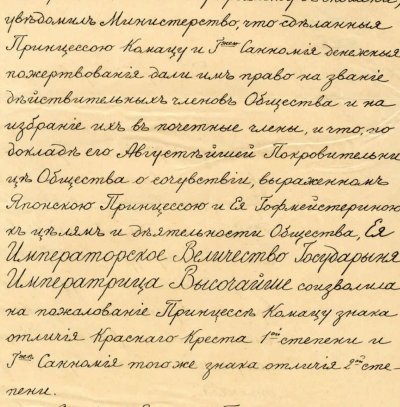 увѣдомилъ Министерство, что сдѣланныя
Принцессою Комацу и Г-жею Санномія денежныя
пожертвованія дали имъ право на званіе
дѣйствительныхъ членовъ Общества и на
избраніе ихъ въ почетные члены, и что, по
докладѣ его Августѣйшей Покровительни
цѣ Общества о сочувствіи, выраженномъ
Японскою Принцессою и Ея Гофмейстериною
къ цѣлямъ и дѣятельности Общества, Ея
Императорское Величество Государыня
Императрица Высочайше соизволила
на пожалованіе Принцессѣ Комацу знака
отличія Краснаго Креста 1ой степени и
Г-жѣ Санномія того же знака отличія 2ой сте-
пени.